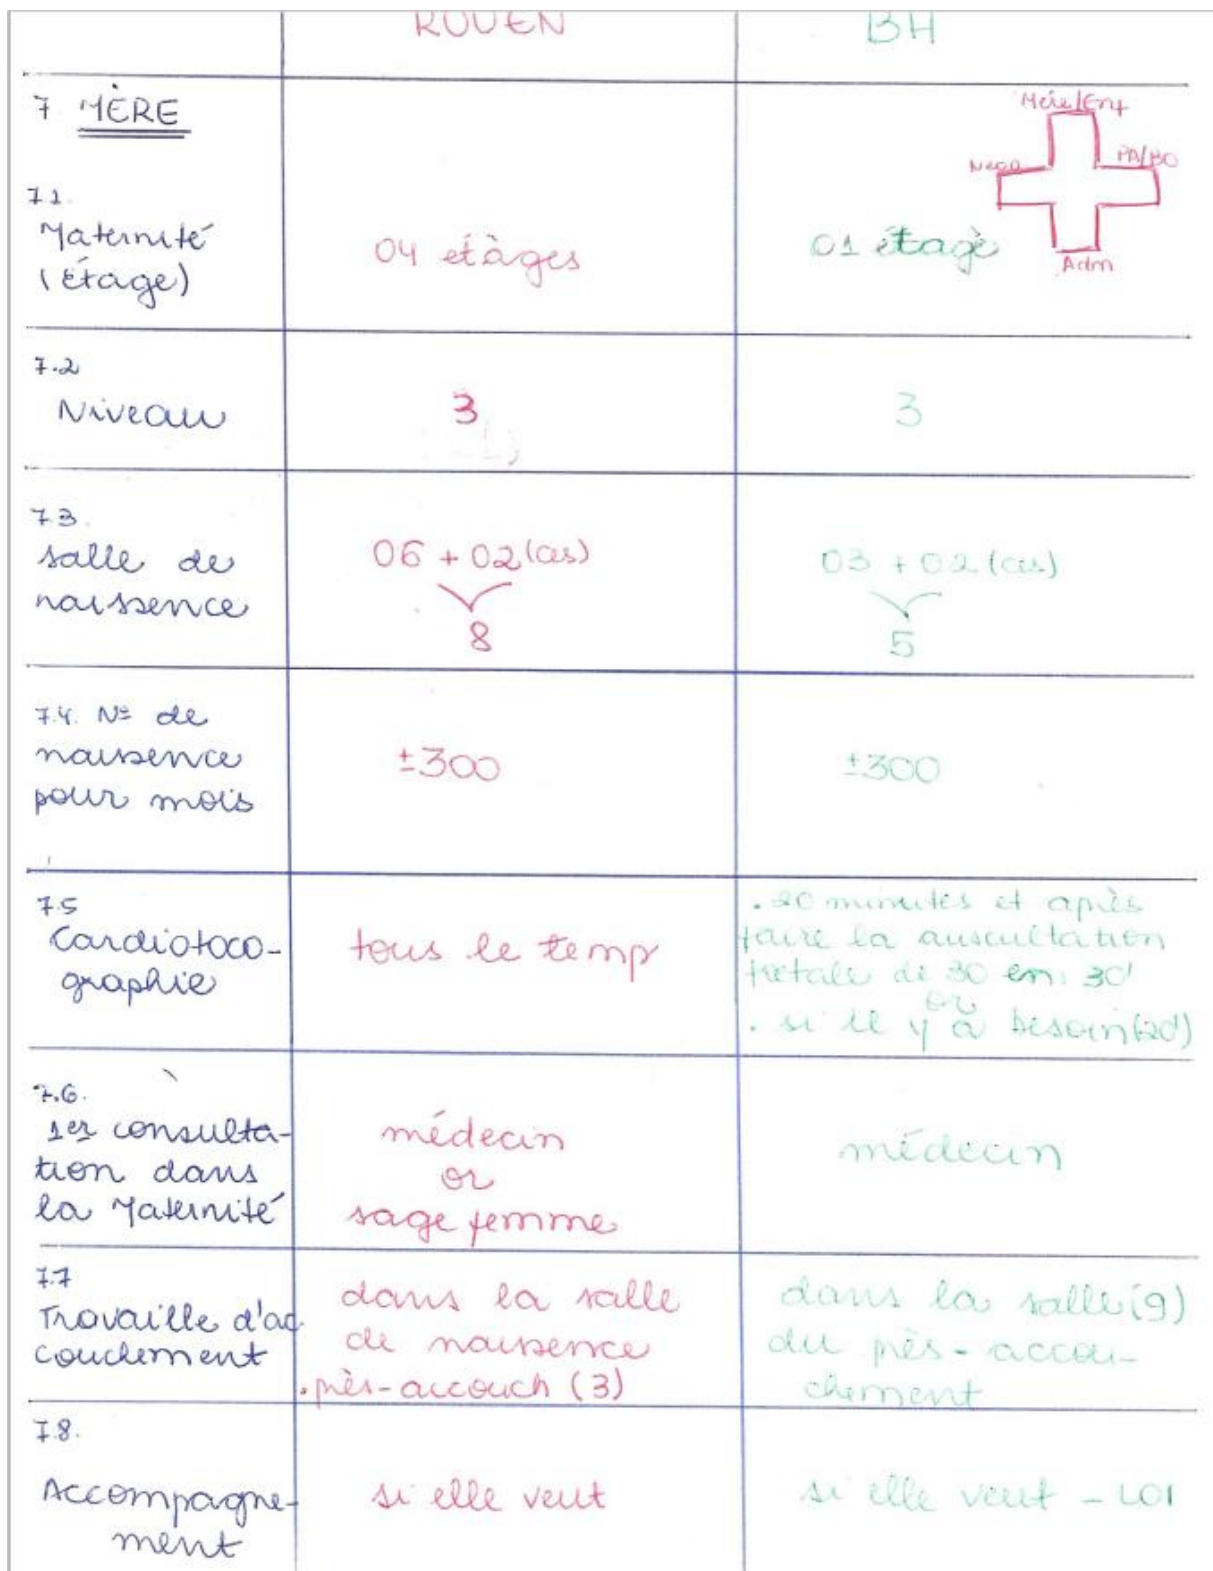 ROUEN BH
7 MÈRE
Mère/Enf
PA/BO
Adm
7.1.
Maternité
(étage)
04 etàges
01 étagè
7.2
Niveau
3
3
7.3.
salle de
naissence
06 + 02 (ces)
8
03 + 02 (ces)
5
7.4. Nº de
naissence
pour mois
±300
±300
7.5
Cardiotoco-
graphie
tous le temp
. 20 minutes et après
faire la auscultation
fœtale de 30 em 30'
or
. si il y a besoin (20')
7.6.
1er consulta-
tion dans
la Maternité
médecin
or
sage femme
médecin
7.7
Travaille d'ac
couchement
dans la salle
de naissence
. près-accouch (3)
dans la salle (9)
du près-accou-
chement
7.8.
Accompagne-
ment
si elle veut
si elle veut - LOI